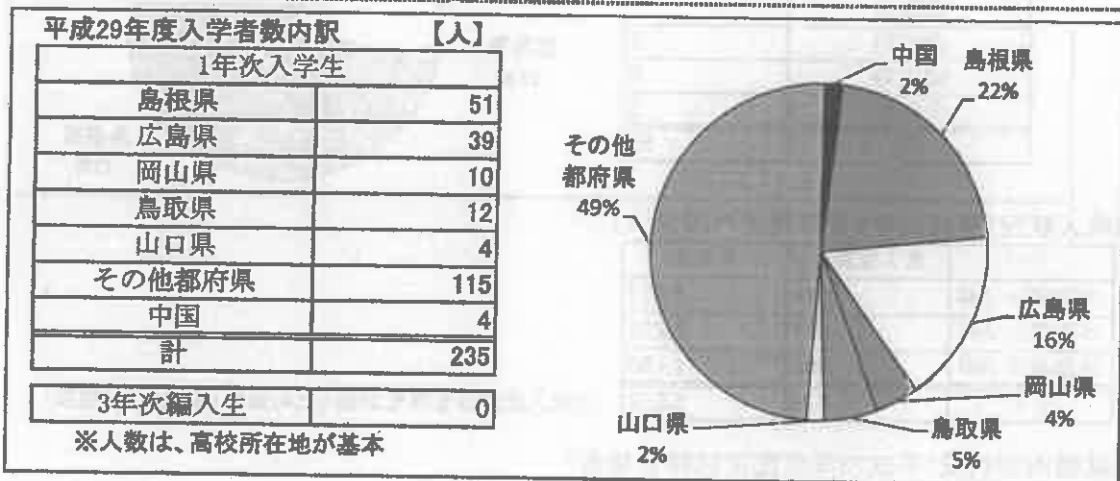 平成29年度入学者数内訳 【人】
1年次入学生
島根県 51
広島県 39
岡山県 10
鳥取県 12
山口県 4
その他都府県 115
中国 4
計 235
3年次編入生 0
※人数は、高校所在地が基本
中国
2%
島根県
22%
広島県
16%
岡山県
4%
鳥取県
5%
山口県
2%
その他
都府県
49%